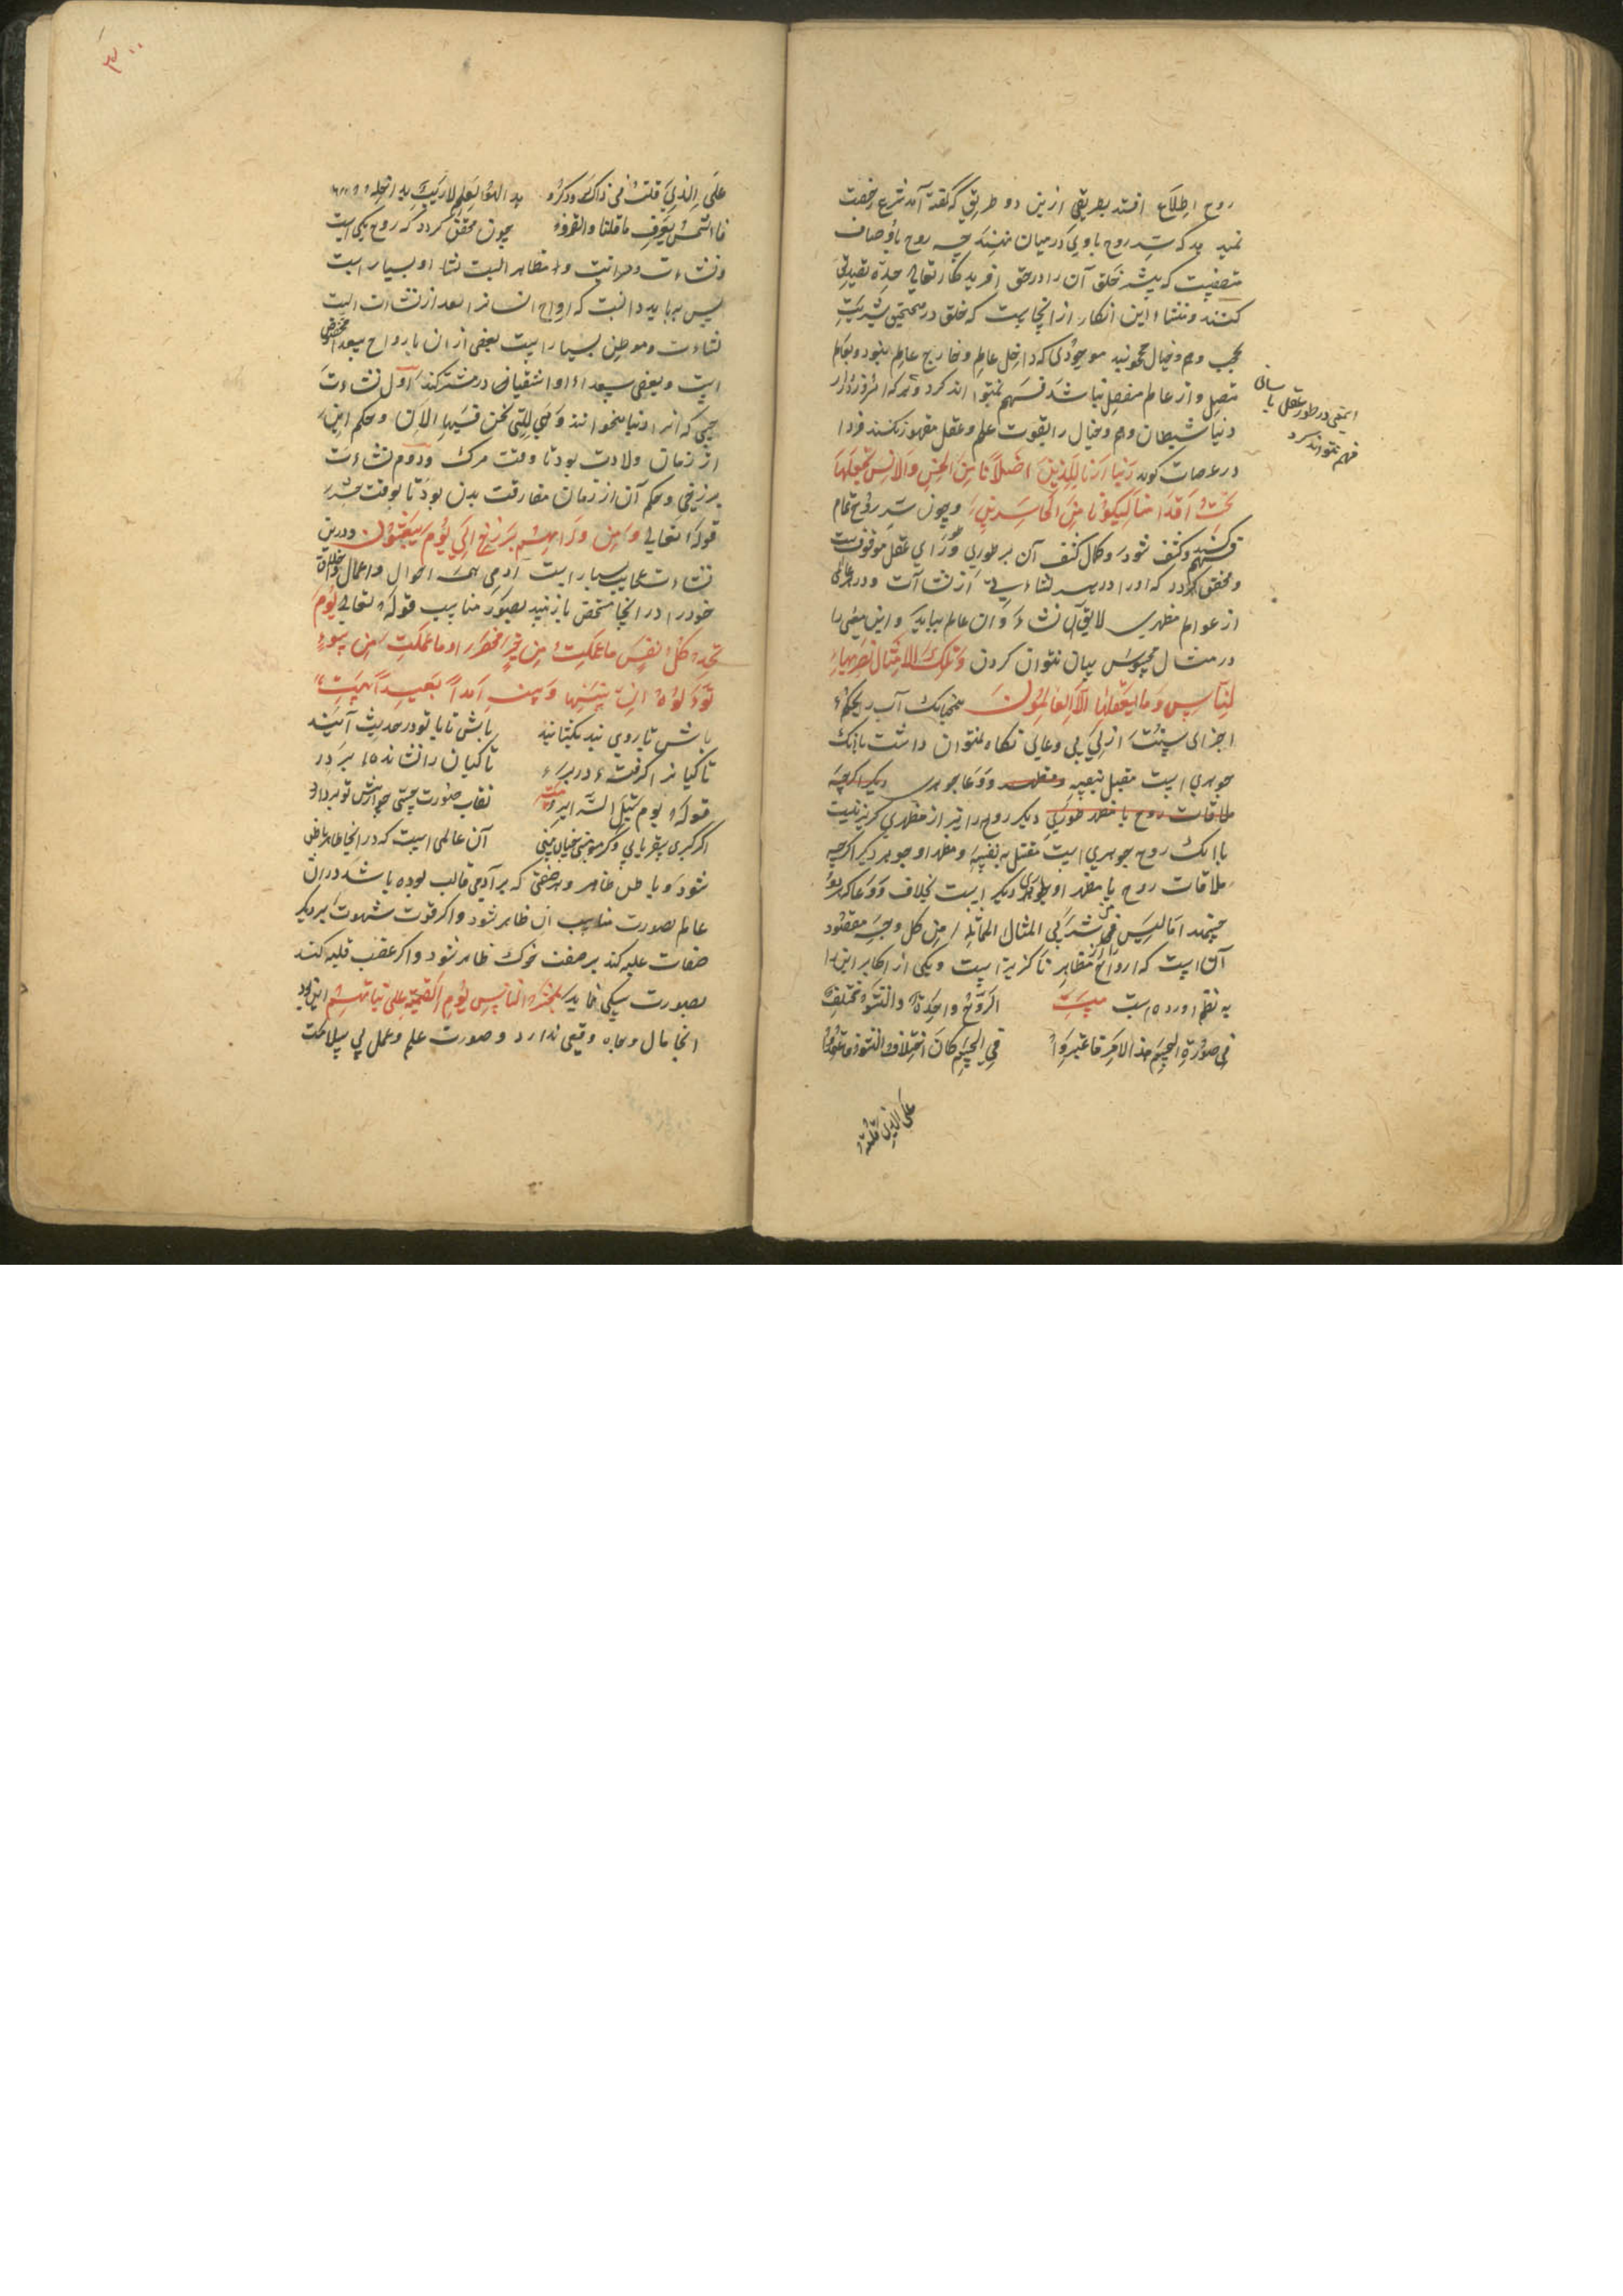 روح اطلاع افتد بطریقی ازین دو طریق که گفته آمد شرع رخصت
نمید بد که سرّ روح باوی در میان نهند چه روح باوصاف
متصفست که بیشتر خلق آن را در حق افریدکار تعالی جدّه تصدیق
کنند و منشاء این انکار از انجاست که خلق در
بحجب وهم و خیال محجوبند موجودی که داخل عالم و خارج عالم نبود و بعالم
متصل و از عالم منفصل نباشد فهم نتوانند کرد و هر که امروز در
دنیا شیطان وهم و خیال را بقوت علم و عقل مقهور نکند فردا
در عرصات کوید رَبَّنا اَرِنا الَّذَینِ اَضَلّانا مِنَ الجِنِّ وَالاِنسِ نَجعَلهُما
تَحتَ اَقدامِنا لِیَکونا مِنَ و چون سرّ روح تمام
کشف شود و کمال کشف آن بر طوری ورای عقل موقوفست
و محقق کردد که او را در هر نشاءتی از نشاآت و در هر عالمی
از عوالم مظهری لایق آن نشاء و آن عالم بباید و این معنی را
در مثال محسوس بیان نتوان کردن وَتِلکَ الاَمثالُ نَضرِبُها
لِلنّاسِ وَما یَعقِلُها اِلَّا العالِمُونَ همچنانک آب را بحکم
اجزای از وعایی نکاه نتوان داشت باانک
جوهری است مقبل بنفسه ومظهر و وعا جوهری دیکر اکرچه
ملاقات روح با مظهر طوری دیکر روح را نیز از مظهری کریز نیست
باانک روح جوهری است مقبل به نفسه و مظهر او جوهر دیکر اکرچه
ملاقات روح با مظهر او طوری دیکر است بخلاف وعا که هر دو
جسمند اما لیس فی شرکی المثال المماثله من کل وجه مقصود
آن است که ارواح را از مظاهر ناکزیر است و یکی از اکابر این را
به نظم اورده است بیت الرُّوحُ واحِدَةٌ وَالنَّشوُ مُختَلِفٌ
فی صُورَةِ الجِسمِ هذا الاَمرُ فاعتَبِروا فی الجِسمِ کانَ اختِلافُ النَّشوِ فاعتَمِدوا
علی الذی قلته
این معنی در طور عقل یا سانی
فهم نتواند کرد
۳۰۰
عَلَی الَّذی قُلتُهُ فی ذاکَ وَادَّکِروا
فاالشَّمسُ یَعرِفُ ما قُلنا وَالقَمَرُ چون محقق کردد که روح یکی است
و مظاهر او بسیار است
پس بباید دانست که ارواح انسانرا بعد از نشاات الست
نشاءت و موطن بسیار است بعضی از آن بارواح سعدا مخصوص
است و بعضی سعداء و اشقیا در آن مشترکند اول نشاءت
حسّی که انرا دنیا میخوانند وَهِیَ الَّتی نَحنُ فیها الآن و حکم این
از زمان ولادت بود تا وقت مرک و دوم نشاءت
برزخی و حکم آن از زمان مفارقت بدن بود تا بوقت حشر
قوله تعالی وَمِن وَرائِهِم بَرزَخٌ اِلی یَومِ یُبعَثُونَ و درین
نشاءت عجایب بسیار است آدمی همه احوال و اعمال و اخلاق
خود را در انجا مشخص باز بیند بصور مناسب قوله تعالی یَومَ
تَجِدُ کُلُّ نَفسٍ ما عَمِلَت مِن خَیرٍ مُحضَرًا وما عَمِلَت مِن سُوءٍ
تَوَدُّ لَو اَنَّ بَینَها وَبَینَهُ اَمَدًا بَعیدًا بیت
باش تا روی بند بکشایند باش تا با تو در حدیث آیند
تا کیانرا کرفتهٔ در بر تا کیان رانشانده بر در
قوله یوم تبلی السرائر بیت نقاب صورت چو از پیش تو بردارد
اکر کبری سقر یابی وکر مومن جنان بینی آن عالمی است که در انجا ظاهر باطن
شود و باطن ظاهر و هر صفتی که بر آدمی غالب بوده باشد در ان
عالم بصورت مناسب آن ظاهر شود و اکر قوت شهوت بر دیکر
صفات غلبه کند بر صفت خوک ظاهر شود و اکر غضب غلبه کند
بصورت سکی نماید یُحشَرُ النّاسُ یَومَ القِیٰمَةِ عَلی نِیّاتِهِم
انجا مال و جاه وقعی ندارد و صورت علم و عمل بی سلامت